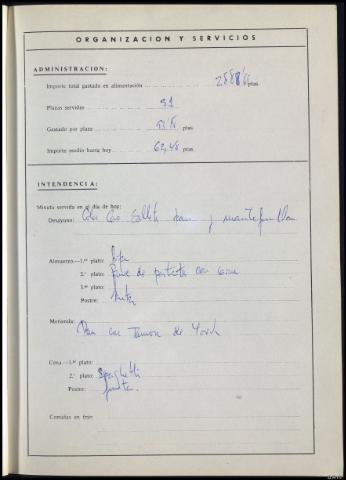 ORGANIZACION Y SERVICIOS
ADMINISTRACION:
Importe total gastado en alimentación ptas.
Plazas servidas 91
Gastado por plaza ptas.
Importe medio hasta hoy 62,48 ptas.
INTENDENCIA:
Minuta servida en el día de hoy:
Desayuno: Cola Cao Galleta pan y mantequilla
Almuerzo.—1.er plato: Sopa
2.º plato: Guiso de patata con carne
3.er plato:
Postre: fruta
Merienda: Pan con Jamon de York
Cena.—1.er plato:
2.º plato: Spaghetti
Postre: fruta.
Comidas en frío: